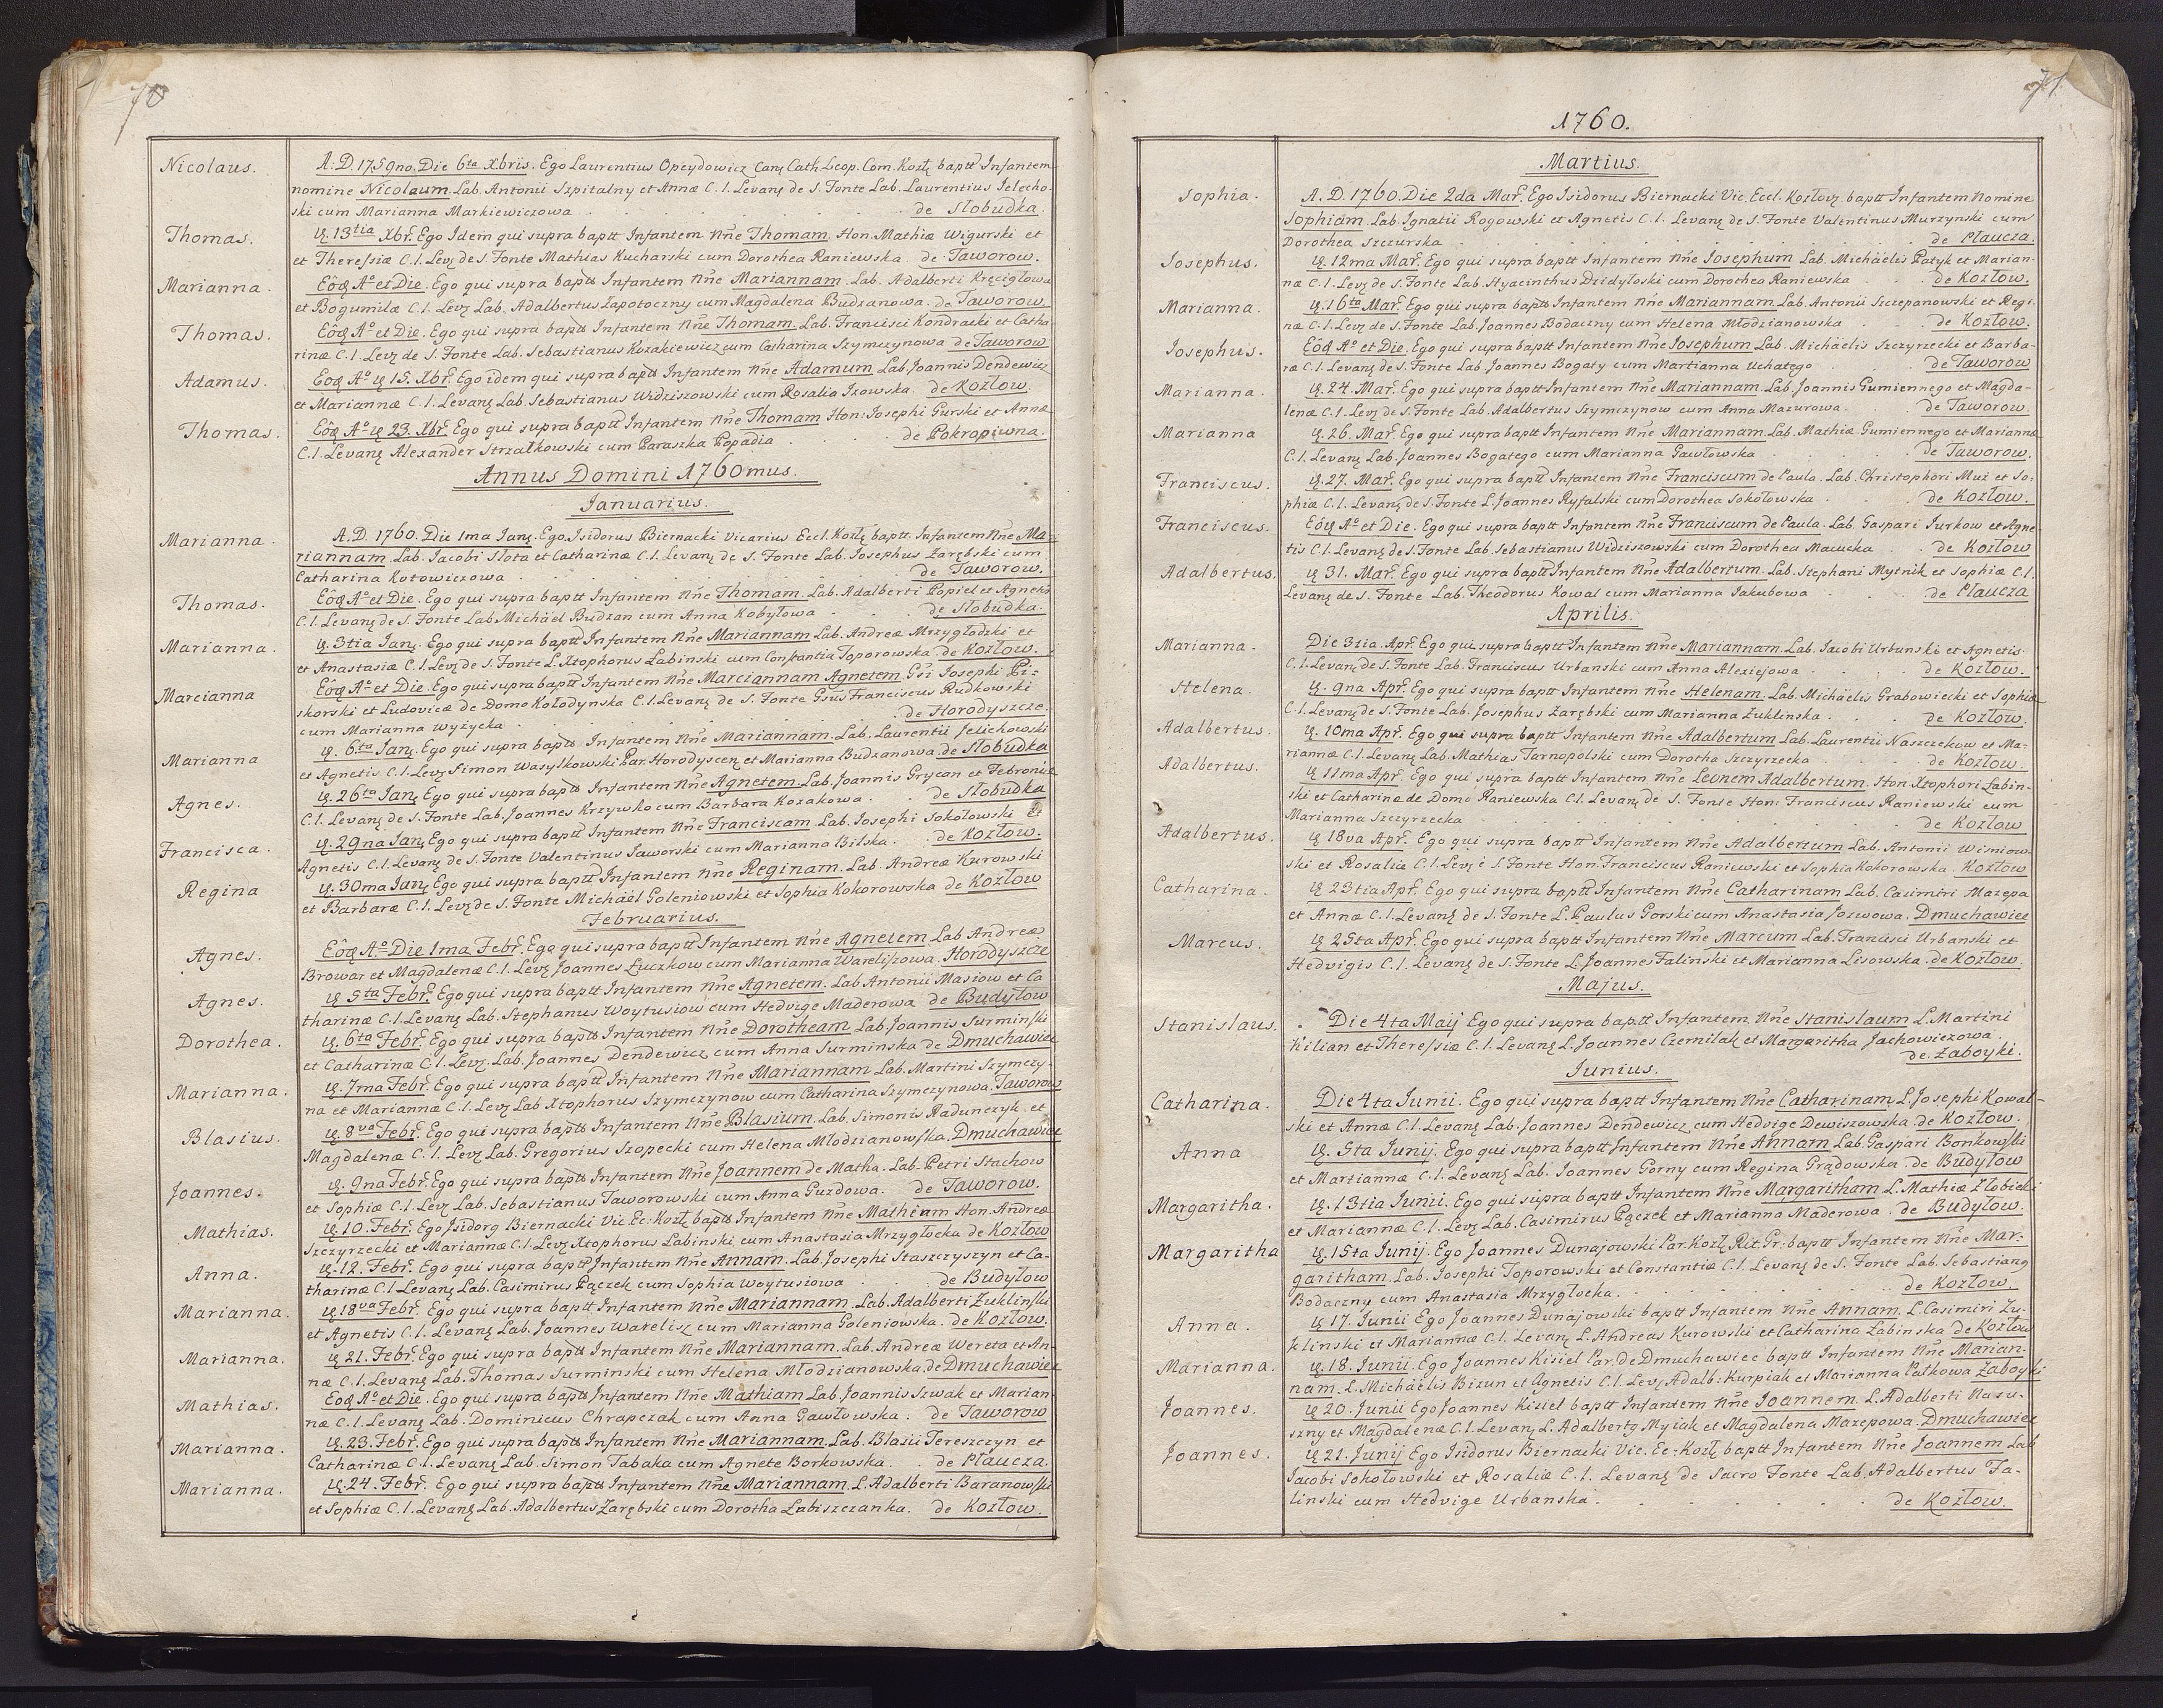 70
Nicolaus. A. D. 1759no. Die 6ta Xbris. Ego Laurentius Opeydowicz Canꝫ Cath. Leop. Com. Kozłꝫ baptt Infantem
nomine Nicolaum. Lab. Antonii Szpitalny et Annæ C. l. Levanꝫ de S. Fonte Lab. Laurentius Jelecho-
ski cum Marianna Markiewiczowa . . . de Słobudka.
Thomas. ꝗ 13tia Xbr̃. Ego Idem qui supra baptt Infantem Nñe Thomam. Hon. Mathiæ Wigurski et
et Theressiæ C. l. Levꝫ de S. Fonte Mathias Kucharski cum Dorothea Raniewska. de Taworow.
Marianna. Eôꝗ Aº et Die. Ego qui supra baptt Infantem Nñe Mariannam. Lab. Adalberti Kręcigłowa
et Bogumilæ C. l. Levꝫ Lab. Adalbertus Zapotoczny cum Magdalena Budzanowa. de Taworow.
Thomas. Eôꝗ Aº et Die. Ego qui supra baptt Infantem Nñe Thomam. Lab. Francisci Kondracki et Catha
rinæ C. l. Levꝫ de S. Fonte Lab. Sebastianus Kozakiewicz cum Catharina Szymczynowa de Taworow
Adamus. Eoꝗ Aº ꝗ 15. Xbr̃. Ego idem qui supra baptt Infantem Nñe Adamum Lab. Joannis Dendewicz
et Mariannæ C. l. Levanꝫ Lab. Sebastianus Widziszowski cum Rosalia Izowska. de Kozłow.
Thomas. Eôꝗ Aº ꝗ 23. Xbr̃. Ego qui supra baptt Infantem Nñe Thomam Hon. Josephi Gurski et Annæ
C. l. Levanꝫ Alexander Strzałkowski cum Paraszka Popadia . . . de Pokropiwna.
Annus Domini 1760mus.
Januarius.
Marianna. A. D. 1760. Die 1ma Janꝫ. Ego Isidorus Biernacki Vicarius Eccl. Kozłꝫ baptt. Infantem Nñe Ma-
riannam. Lab. Jacobi Słota et Catharinæ C. l. Levanꝫ de S. Fonte Lab. Josephus Zarębski cum
Catharina Kotowiczowa . . . de Taworow.
Thomas. Eôꝗ Aº et Die. Ego qui supra baptt Infantem Nñe Thomam. Lab. Adalberti Popiel et Agnetis
C. l. Levanꝫ de S. Fonte Lab. Michäel Budzan cum Anna Kobyłowa . . de Słobudka.
Marianna. ꝗ. 3tia Janꝫ. Ego qui supra baptt Infantem Nñe Mariannam Lab. Andreæ Mrzygłodzki et
et Anastasiæ C. l. Levꝫ de S. Fonte L. Xtophorus Labinski cum Constantia Toporowska de Kozłow.
Marcianna Eôꝗ Aº et Die. Ego qui supra baptt Infantem Nñe Marciannam Agnetem. Gsi Josephi Pi-
skorski et Ludovicæ de Domo Kołodynska C. l. Levanꝫ de S. Fonte Gsus Franciscus Rudkowski
cum Marianna Wyżycka . . . de Horodyszcze.
Marianna ꝗ. 6ta Janꝫ. Ego qui supra baptt Infantem Nñe Mariannam. Lab. Laurentii Jelichowski
et Agnetis C. l. Levꝫ Simon Wasylkowski Par. Horodyscen et Marianna Budzanowa. de Słobudka
Agnes. ꝗ. 26ta Janꝫ Ego qui supra baptt Infantem Nñe Agnetem. Lab. Joannis Grycan et Febroniæ
C. l. Levanꝫ de S. Fonte Lab. Joannes Krzywko cum Barbara Kozakowa. de Słobudka
Francisca. ꝗ. 29na Janꝫ Ego qui supra baptt Infantem Nñe Franciscam. Lab. Josephi Sokołowski et
Agnetis C. l. Levanꝫ de S. Fonte Valentinus Jaworski cum Marianna Bilska. de Kozłow.
Regina ꝗ. 30ma Janꝫ Ego qui supra baptt Infantem Nñe Reginam. Lab. Andreæ Kurowski
et Barbaræ C. l. Levꝫ de S. Fonte Michäel Goleniowski et Sophia Kokorowska de Kozłow
Februarius.
Agnes. Eôꝗ Aº Die 1ma Febr̃. Ego qui supra baptt Infantem Nñe Agnetem Lab Andreæ
Browar et Magdalenæ C. l. Levꝫ Joannes Łuczkow cum Marianna Wareliszowa. Horodyszcze
Agnes. ꝗ 5ta Febr̃. Ego qui supra baptt Infantem Nñe Agnetem. Lab Antonii Masiow et Ca
tharinæ C. l. Levanꝫ Lab. Stephanus Woytusiow cum Hedvige Maderowa de Budyłow
Dorothea. ꝗ. 6ta Febr̃. Ego qui supra baptt Infantem Nñe Dorotheam Lab. Joannis Surminski
et Catharinæ C. l. Levꝫ. Lab. Joannes Dendewicz cum Anna Surminska de Dmuchawiec
Marianna. ꝗ. 7ma Febr̃. Ego qui supra baptt Infantem Nñe Mariannam Lab. Martini Szymczy-
na et Mariannæ C. l. Levꝫ Lab Xtophorus Szymczynow cum Catharina Szymczynowa. Taworow
Blasius. ꝗ. 8va Febr̃. Ego qui supra baptt Infantem Nñe Blasium. Lab. Simonis Radunczyk et
Magdalenæ C. l. Levꝫ Lab. Gregorius Szopecki cum Helena Młodzianowska. Dmuchawiec
Joannes. ꝗ. 9na Febr̃. Ego qui supra baptt Infantem Nñe Joannem de Matha. Lab. Petri Stachow
et Sophiæ C. l. Levꝫ Lab. Sebastianus Taworowski cum Anna Guzdowa. de Taworow.
Mathias. ꝗ. 10. Febr̃. Ego Isidorꝗ Biernacki Vic. Ec: Kozłꝫ baptt Infantem Nñe Mathiam Hon. Andreæ
Szczyrzecki et Mariannæ C. l. Levꝫ Xtophorus Labinski cum Anastasia Mrzygłocka de Kozłow
Anna. ꝗ. 12. Febr̃. Ego qui supra baptt Infantem Nñe Annam. Lab. Josephi Staszczyszyn et Ca-
tharinæ C. l. Levanꝫ Lab. Casimirus Pączek cum Sophia Woytusiowa . . de Budyłow
Marianna. ꝗ 18va Febr̃. Ego qui supra baptt Infantem Nñe Mariannam. Lab. Adalberti Żuklinski
et Agnetis C. l. Levanꝫ Lab. Joannes Warelisz cum Marianna Goleniowska. de Kozłow.
Marianna. ꝗ 21. Febr̃. Ego qui supra baptt Infantem Nñe Mariannam. Lab. Andreæ Wereta et An-
næ C. l. Levanꝫ Lab. Thomas Surminski cum Helena Młodzianowska. de Dmuchawiec
Mathias. Eoꝗ Aº et Die. Ego qui supra baptt Infantem Nñe Mathiam Lab. Joannis Szwak et Marian
næ C. l. Levanꝫ Lab. Dominicus Chrapczak cum Anna Gawłowska. de Taworow
Marianna. ꝗ. 23. Febr̃. Ego qui supra baptt Infantem Nñe Mariannam. Lab. Blasii Tereszczyn et
Catharinæ C. l. Levanꝫ Lab. Simon Tabaka cum Agnete Borkowska. . de Płaucza.
Marianna. ꝗ. 24. Febr̃. Ego qui supra baptt Infantem Nñe Mariannam. L. Adalberti Baranowski
et Sophiæ C. l. Levanꝫ Lab. Adalbertus Zarębski cum Dorotha Labiszczanka. de Kozłow.
71
1760.
Martius.
Sophia. A. D. 1760. Die 2da Mar̃. Ego Isidorus Biernacki Vic. Eccl. Kozłovꝫ. baptt Infantem Nomine
Sophiam. Lab. Ignatii Rogowski et Agnetis C. l. Levanꝫ de S. Fonte Valentinus Murzynski cum
Dorothea Szczurska . . . de Płaucza.
Josephus. ꝗ. 12ma Mar̃. Ego qui supra baptt Infantem Nñe Josephum Lab. Michäelis Patyk et Marian-
næ C. l. Levꝫ de S. Fonte Lab. Hyacinthus Dzidyłoski cum Dorothea Raniewska . . de Kozłow.
Marianna. ꝗ. 16ta Mar̃. Ego qui supra baptt Infantem Nñe Mariannam. Lab. Antonii Szczepanowski et Regi-
næ C. l. Levꝫ de S. Fonte Lab. Joannes Bodaczny cum Helena Młodzianowska . . de Kozłow.
Josephus. Eôꝗ Aº et Die. Ego qui supra baptt Infantem Nñe Josephum Lab. Michäelis Szczyrzecki et Barba-
ræ C. l. Levanꝫ de S. Fonte Lab. Joannes Bogaty cum Martianna Uchatego . . de Taworow
Marianna. ꝗ. 24. Mar̃. Ego qui supra baptt Infantem Nñe Mariannam. Lab. Joannis Gumiennego et Magda-
lenæ C. l. Levꝫ de S. Fonte Lab. Adalbertus Szymczynow cum Anna Mazurowa. . de Taworow.
Marianna ꝗ. 26. Mar̃. Ego qui supra baptt Infantem Nñe Mariannam. Lab. Mathiæ Gumiennego et Mariannæ
C. l. Levanꝫ Lab. Joannes Bogatego cum Marianna Gawłowska . . de Taworow.
Franciscus. ꝗ. 27. Mar̃. Ego qui supra baptt Infantem Nñe Franciscum de Paula. Lab. Christophori Muż et So-
phiæ C. l. Levanꝫ de S. Fonte L. Joannes Ryfalski cum Dorothea Sokołowska . . de Kozłow.
Franciscus. Eôꝗ Aº et Die. Ego qui supra baptt Infantem Nñe Franciscum de Paula. Lab. Gaspari Jurkow et Agne-
tis C. l. Levanꝫ de S. Fonte Lab. Sebastianus Widziszowski cum Dorothea Macucka . . de Kozłow
Adalbertus. ꝗ 31. Mar̃. Ego qui supra baptt Infantem Nñe Adalbertum. Lab. Stephani Mytnik et Sophiæ C. l.
Levanꝫ de S. Fonte Lab. Theodorus Kowal cum Marianna Jakubowa . . de Płaucza
Aprilis.
Marianna. Die 3tia. Apr̃. Ego qui supra baptt Infantem Nñe Mariannam. Lab. Jacobi Urbanski et Agnetis
C. l. Levanꝫ de S. Fonte Lab. Franciscus Urbanski cum Anna Alexiejowa . . de Kozłow.
Helena. ꝗ. 9na Apr̃. Ego qui supra baptt Infantem Nñe Helenam. Lab. Michäelis Grabowiecki et Sophiæ
C. l. Levanꝫ de S. Fonte Lab. Josephus Zarębski cum Marianna Żuklinska . . de Kozłow.
Adalbertus. ꝗ. 10ma Apr̃. Ego qui supra baptt Infantem Nñe Adalbertum Lab. Laurentii Naszczekow et Ma-
riannæ C. l. Levanꝫ Lab. Mathias Tarnopolski cum Dorotha Szczyrzecka . . de Kozłow.
Adalbertus. ꝗ 11ma Apr̃. Ego qui supra baptt Infantem Nñe Leonem Adalbertum. Hon. Xtophori Łabin-
ski et Catharinæ de Domo Raniewska C. l. Levanꝫ de S. Fonte Hon: Franciscus Raniewski cum
Marianna Szczyrzecka . . . de Kozłow
Adalbertus. ꝗ 18va Apr̃. Ego qui supra baptt Infantem Nñe Adalbertum Lab. Antonii Wisniow-
ski et Rosaliæ C. l. Levꝫ è S. Fonte Hon. Franciscus Raniewski et Sophia Kokorowska. Kozłow
Catharina. ꝗ 23tia Apr̃. Ego qui supra baptt Infantem Nñe Catharinam Lab. Casimiri Mazepa
et Annæ C. l. Levanꝫ de S. Fonte L. Paulus Gorski cum Anastasia Jozwowa. Dmuchawiec
Marcus. ꝗ 25ta Apr̃. Ego qui supra baptt Infantem Nñe Marcum Lab. Francisci Urbanski et
Hedvigis C. l. Levanꝫ de S. Fonte L. Joannes Falinski et Marianna Lisowska. de Kozłow.
Majus.
Stanislaus. Die 4ta Maij Ego qui supra baptt Infantem Nñe Stanislaum L. Martini
Kilian et Theressiæ C. l. Levanꝫ L. Joannes Czernilak et Margaritha Jachowiczowa.
de Żaboyki.
Junius.
Catharina. Die 4ta Junii. Ego qui supra baptt Infantem Nñe Catharinam. L. Josephi Kowal-
ski et Annæ C. l. Levanꝫ Lab. Joannes Dendewicz cum Hedvige Dewiszowzka. de Kozłow.
Anna ꝗ. 5ta Junij. Ego qui supra baptt Infantem Nñe Annam Lab Gaspari Bonkowski
et Martiannæ C. l. Levanꝫ Lab. Joannes Gorny cum Regina Grądowska. de Budyłow
Margaritha. ꝗ. 13tia Junii. Ego qui supra baptt Infantem Nñe Margaritham L. Mathiæ Złobicki
et Mariannæ C. l. Levꝫ Lab. Casimirus Pączek et Marianna Maderowa. de Budyłow.
Margaritha ꝗ. 15ta Junij. Ego Joannes Dunajowski Par. Kozłꝫ Rit. Gr. baptt Infantem Nñe Mar-
garitham. Lab. Josephi Toporowski et Constantiæ C. l. Levanꝫ de S. Fonte Lab. Sebastianꝗ
Bodaczny cum Anastasia Mrzygłocka . . . de Kozłow
Anna. ꝗ 17. Junii Ego Joannes Dunajowski baptt Infantem Nñe Annam. L. Casimiri Żu-
klinski et Mariannæ C. l. Levanꝫ L. Andreas Kurowski et Catharina Łabinska de Kozłow
Marianna. ꝗ. 18. Junii. Ego Joannes Kisiel Par. de Dmuchawiec baptt Infantem Nñe Marian-
nam. L. Michäelis Bizun et Agnetis C. l. Levꝫ Adalb: Kurpiak et Marianna Pałkowa Żaboyki
Joannes. ꝗ 20. Junii Ego Joannes Kisiel baptt Infantem Nñe Joannem. L. Adalberti Nasu-
szny et Magdalenæ C. l. Levanꝫ L. Adalbertꝗ Myiak et Magdalena Mazepowa. Dmuchawiec
Joannes. ꝗ 21. Junij Ego Isidorus Biernacki Vic. Ec: Kozłꝫ baptt Infantem Nñe Joannem Lab
Jacobi Sokołowski et Rosaliæ C. l. Levanꝫ de Sacro Fonte Lab. Adalbertus Fa-
linski cum Hedvige Urbanska . . . de Kozłow.